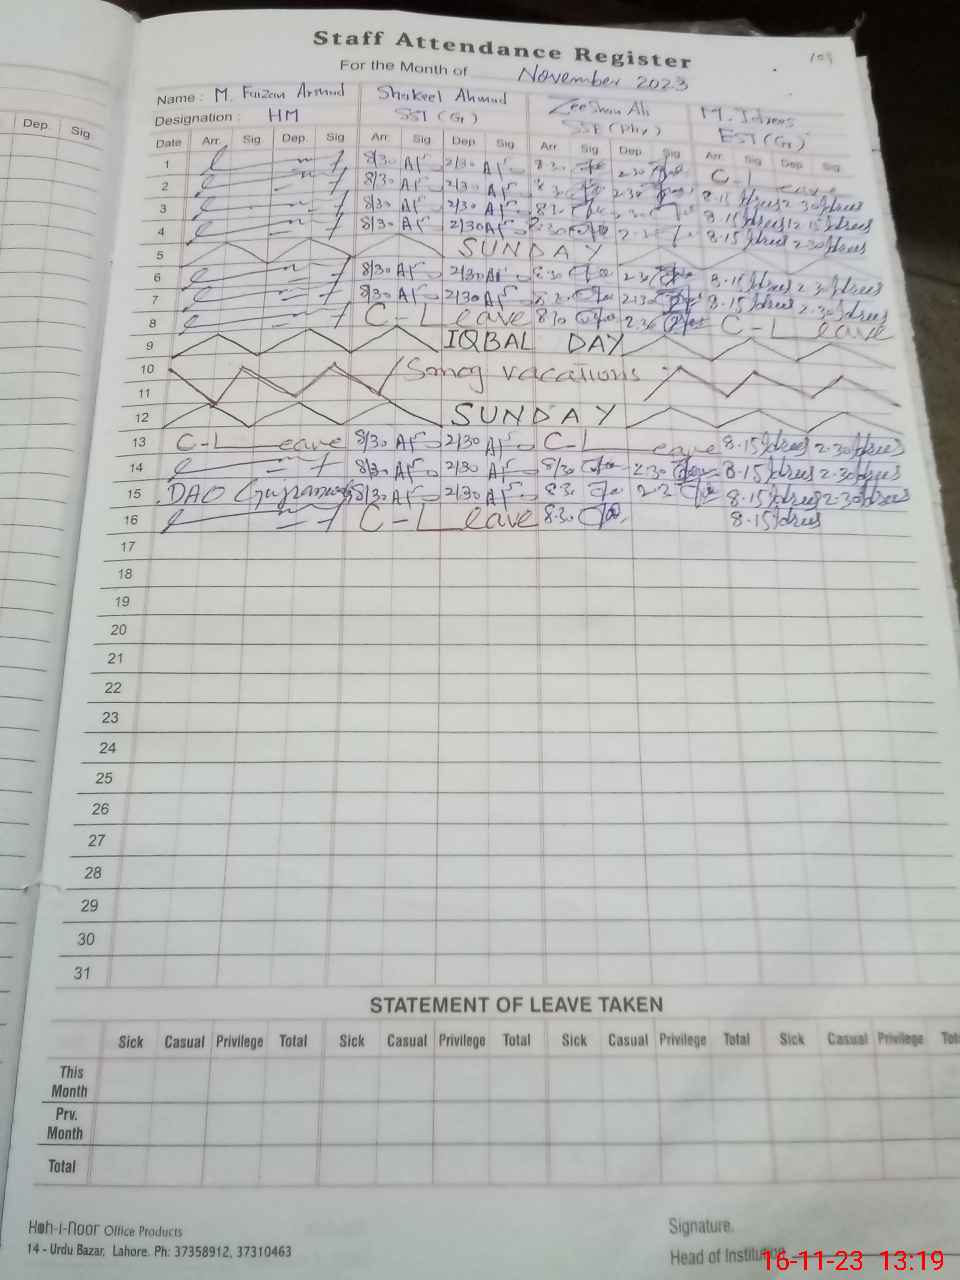 Staff Attendance Register
109
For the Month of November 2023
Dep. Sig
Name : M. Faizan Ahmad Shakeel Ahmad Zeeshan Ali M. Idrees
Designation : HM SST (G) SSE (Phy) EST (G)
Date Arr. Sig Dep. Sig Arr. Sig Dep Sig Arr Sig Dep. Sig Arr. Sig Dep Sig
1 8/30 2/30 8.30 2.30 C-Leave
2 8/30 2/30 8.30 2.30 8.15 Idrees 2.30 Idrees
3 8/30 2/30 8.30 8.15 Idrees 12.15 Idrees
4 8/30 2/30 8.30 2.30 8.15 Idrees 2.30 Idrees
5 SUNDAY
6 8/30 2/30 8.30 2.30 8.15 Idrees 2.30 Idrees
7 8/30 2/30 8.30 2.30 8.15 Idrees 2.30 Idrees
8 C-Leave 8.30 2.30 C-Leave
9 IQBAL DAY
10 Smog vacations
11
12 SUNDAY
13 C-Leave 8/30 2/30 C-Leave 8.15 Idrees 2.30 Idrees
14 8/30 2/30 8/30 2.30 8.15 Idrees 2.30 Idrees
15 DAO Gujranwala 8/30 2/30 8.30 8.15 Idrees 2.30 Idrees
16 C-Leave 8.30 8.15 Idrees
17
18
19
20
21
22
23
24
25
26
27
28
29
30
31
STATEMENT OF LEAVE TAKEN
Sick Casual Privilege Total Sick Casual Privilege Total Sick Casual Privilege Total Sick Casual Privilege Tot
This
Month
Prv.
Month
Total
Koh-i-Noor Office Products
14 - Urdu Bazar, Lahore. Ph: 37358912, 37310463
Signature.
Head of Institution
16-11-23 13:19